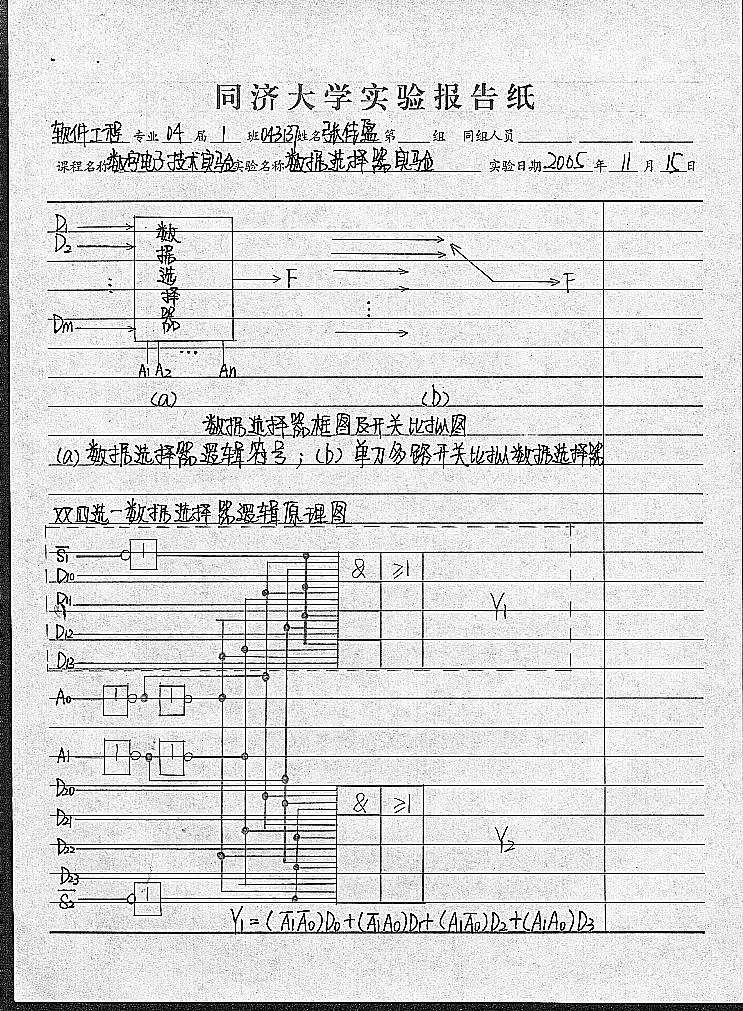 同济大学实验报告纸
软件工程 专业 04 届 1 班 043137 姓名 张伟 第 组 同组人员
课程名称 数字电子技术实验 实验名称 数据选择器实验 实验日期 2005 年 11 月 15 日
D1
D2
⋮
Dm
数据选择器
F
A1 A2 … An
(a)
⋮
F
(b)
数据选择器框图及开关比拟图
(a) 数据选择器逻辑符号；(b) 单刀多路开关比拟数据选择器
双四选一数据选择器逻辑原理图
S̅1 1
D10
D11
D12
D13
& ≥1
Y1
A0 1 1
A1 1 1
D20
D21
D22
D23
S̅2 1
& ≥1
Y2
Y1=(A̅1A̅0)D0+(A̅1A0)D1+(A1A̅0)D2+(A1A0)D3